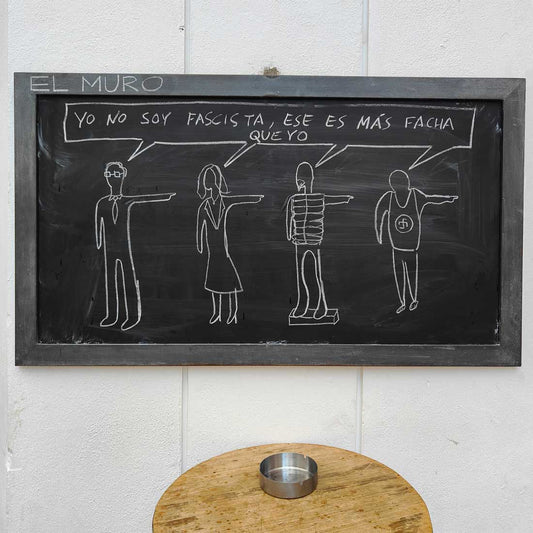 EL MURO
YO NO SOY FASCISTA, ESE ES MÁS FACHA
QUE YO